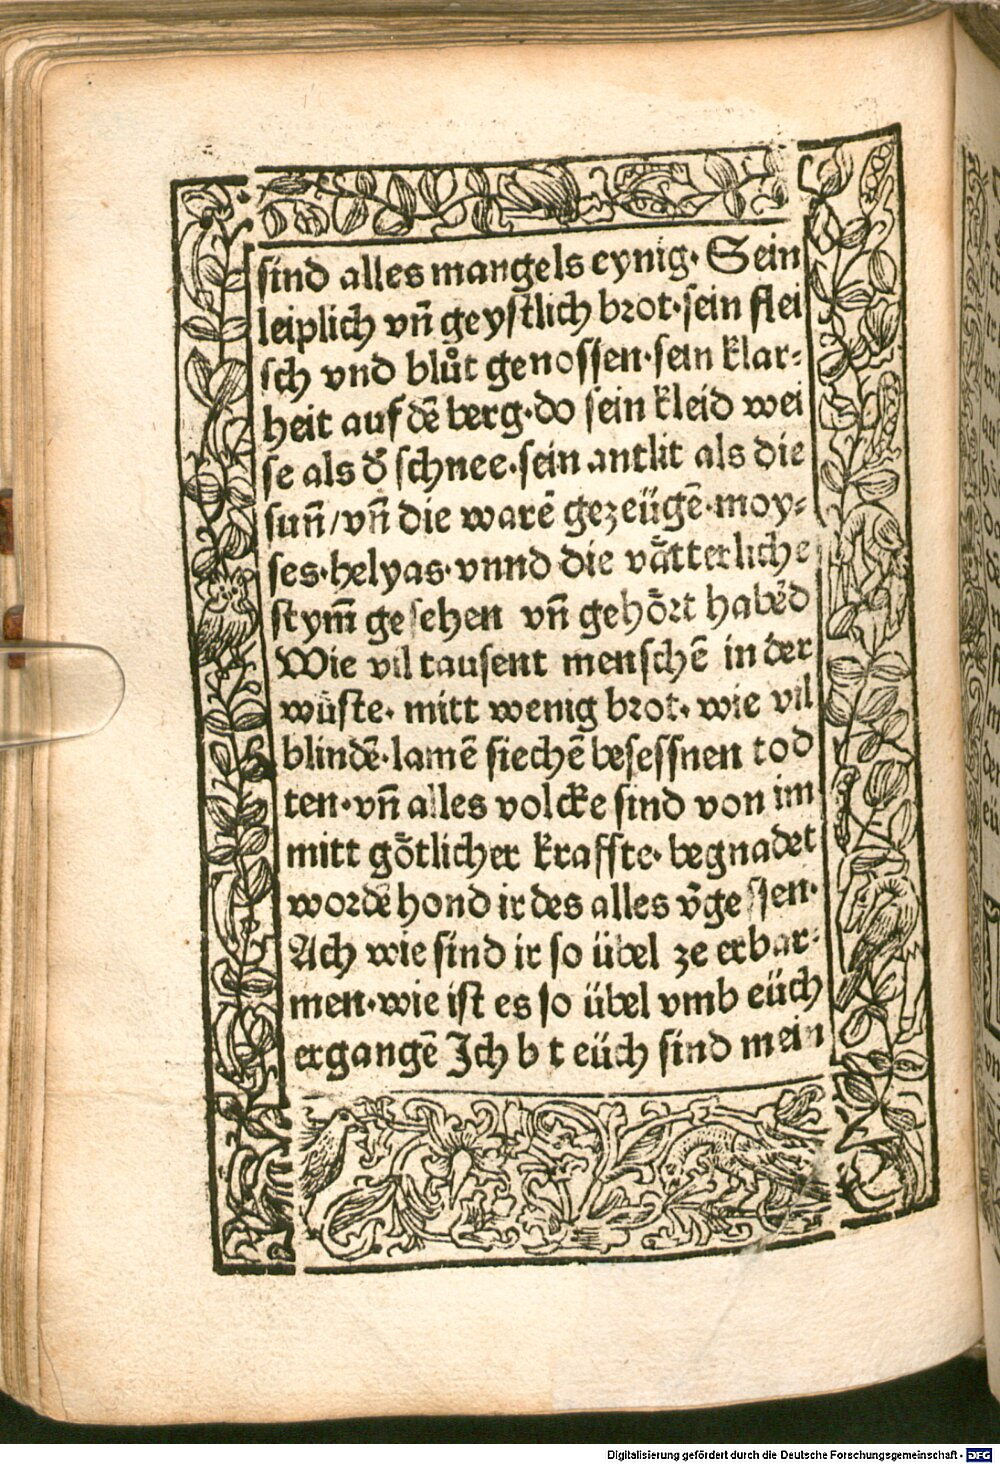 sind alles mangels eynig. Sein
leiplich vn̄ geystlich brot·sein flei
sch vnd blůt genossen·sein klar⸗
heit auf dē berg·do sein kleid wei
se als d̄ schnee·sein antlit als die
sun̄/vn̄ die warē gezeügē·moy⸗
ses·helyas·vnnd die vätterliche
stym̄ gesehen vn̄ gehört habēd
Wie vil tausent menschē in der
wüste· mitt wenig brot· wie vil
blindē·lamē siechē besessnen tod
ten·vn̄ alles volcke sind von im
mitt götlicher kraffte· begnadet
wordē hond ir des alles v̄gessen·
Ach wie sind ir so übel ze erbar⸗
men·wie ist es so übel vmb eüch
ergangē Ich b t eüch sind mein
Digitalisierung gefördert durch die Deutsche Forschungsgemeinschaft - DFG